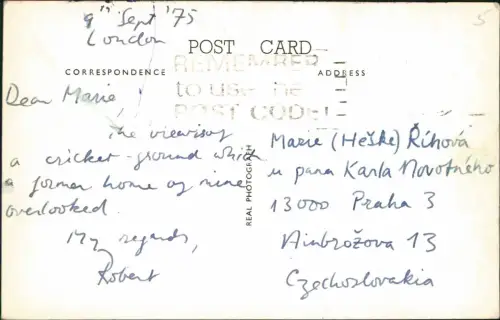 9th Sept '75
London
5
POST CARD
REMEMBER
to use the
POST CODE!
CORRESPONDENCE
ADDRESS
Dear Marie,
The view is of
a cricket-ground which
a former home of mine
overlooked.
My regards,
Robert
REAL PHOTOGRAPH
Marie (Heške) Říhová
u pana Karla Novotného
13000 Praha 3
Ambrožova 13
Czechoslovakia